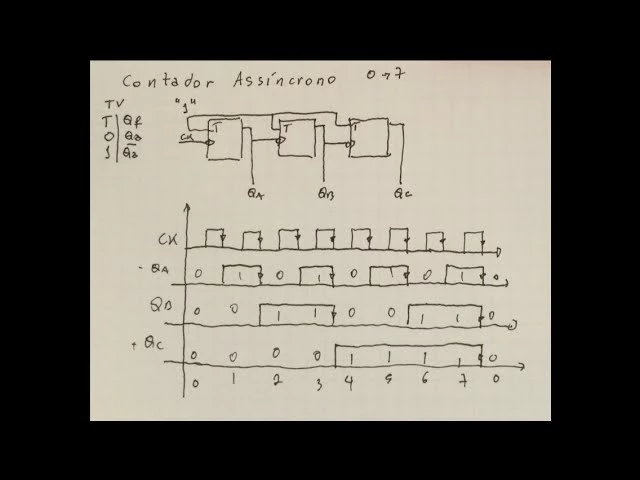 Contador Assíncrono 0→7
TV "1"
T Qf
0 Qa
1 Q̅a
CK T T T
QA QB QC
CK
- QA 0 1 0 1 0 1 0 1 0
QB 0 0 1 1 0 0 1 1 0
+ QC 0 0 0 0 1 1 1 1 0
0 1 2 3 4 5 6 7 0